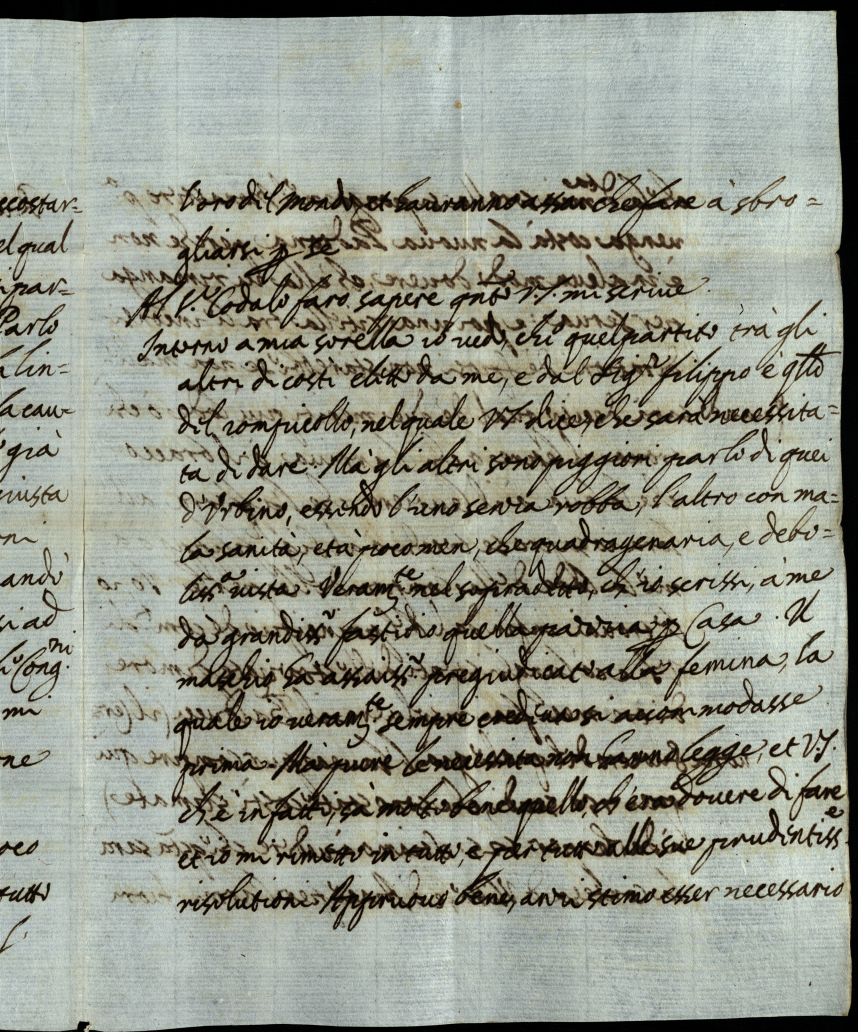 scostar-
el qual
i par-
Parlo
lin-
la cau-
già
giusta
oni
andò
si ad
Cong.ni
mi
one
oco
tutto
l'oro dil mondo, et hauranno assai che fare à sbro=
gliarsi p se
Al S.r Codalo farò sapere qnto V.S. mi scriue.
Intorno a mia sorella io uedo, ch'è quel partito trà gli
altri di costi eletto da me, e dal Sig.r Filippo è qllo
dil rompicollo, nel quale V.S. dice, che sarà necessita=
ta di dare. Mà gli altri sono piggiori parlo di quei
d'Urbino, essendo l'uno senza robba, l'altro con ma=
la sanità, età poco men, che quadragenaria, e debo=
liss.a uista. Veram.te nel sopradetto, ch'io scrissi, à me
dà grandiss.o fastidio quella pazzia p Casa. Il
maschio hà assaiss.o pregiudicato alla femina, la
quale io ueram.te sempre credeua si accommodasse
prima. Mà pure le necessità non hanno legge, et V.S.
ch'è in fatti, sà molto bene quello, ch'era douere di fare
et io mi rimetto in tutto, e per tutto alle sue prudentiss.e
risolutioni. Approuo bene, anzi stimo esser necessario